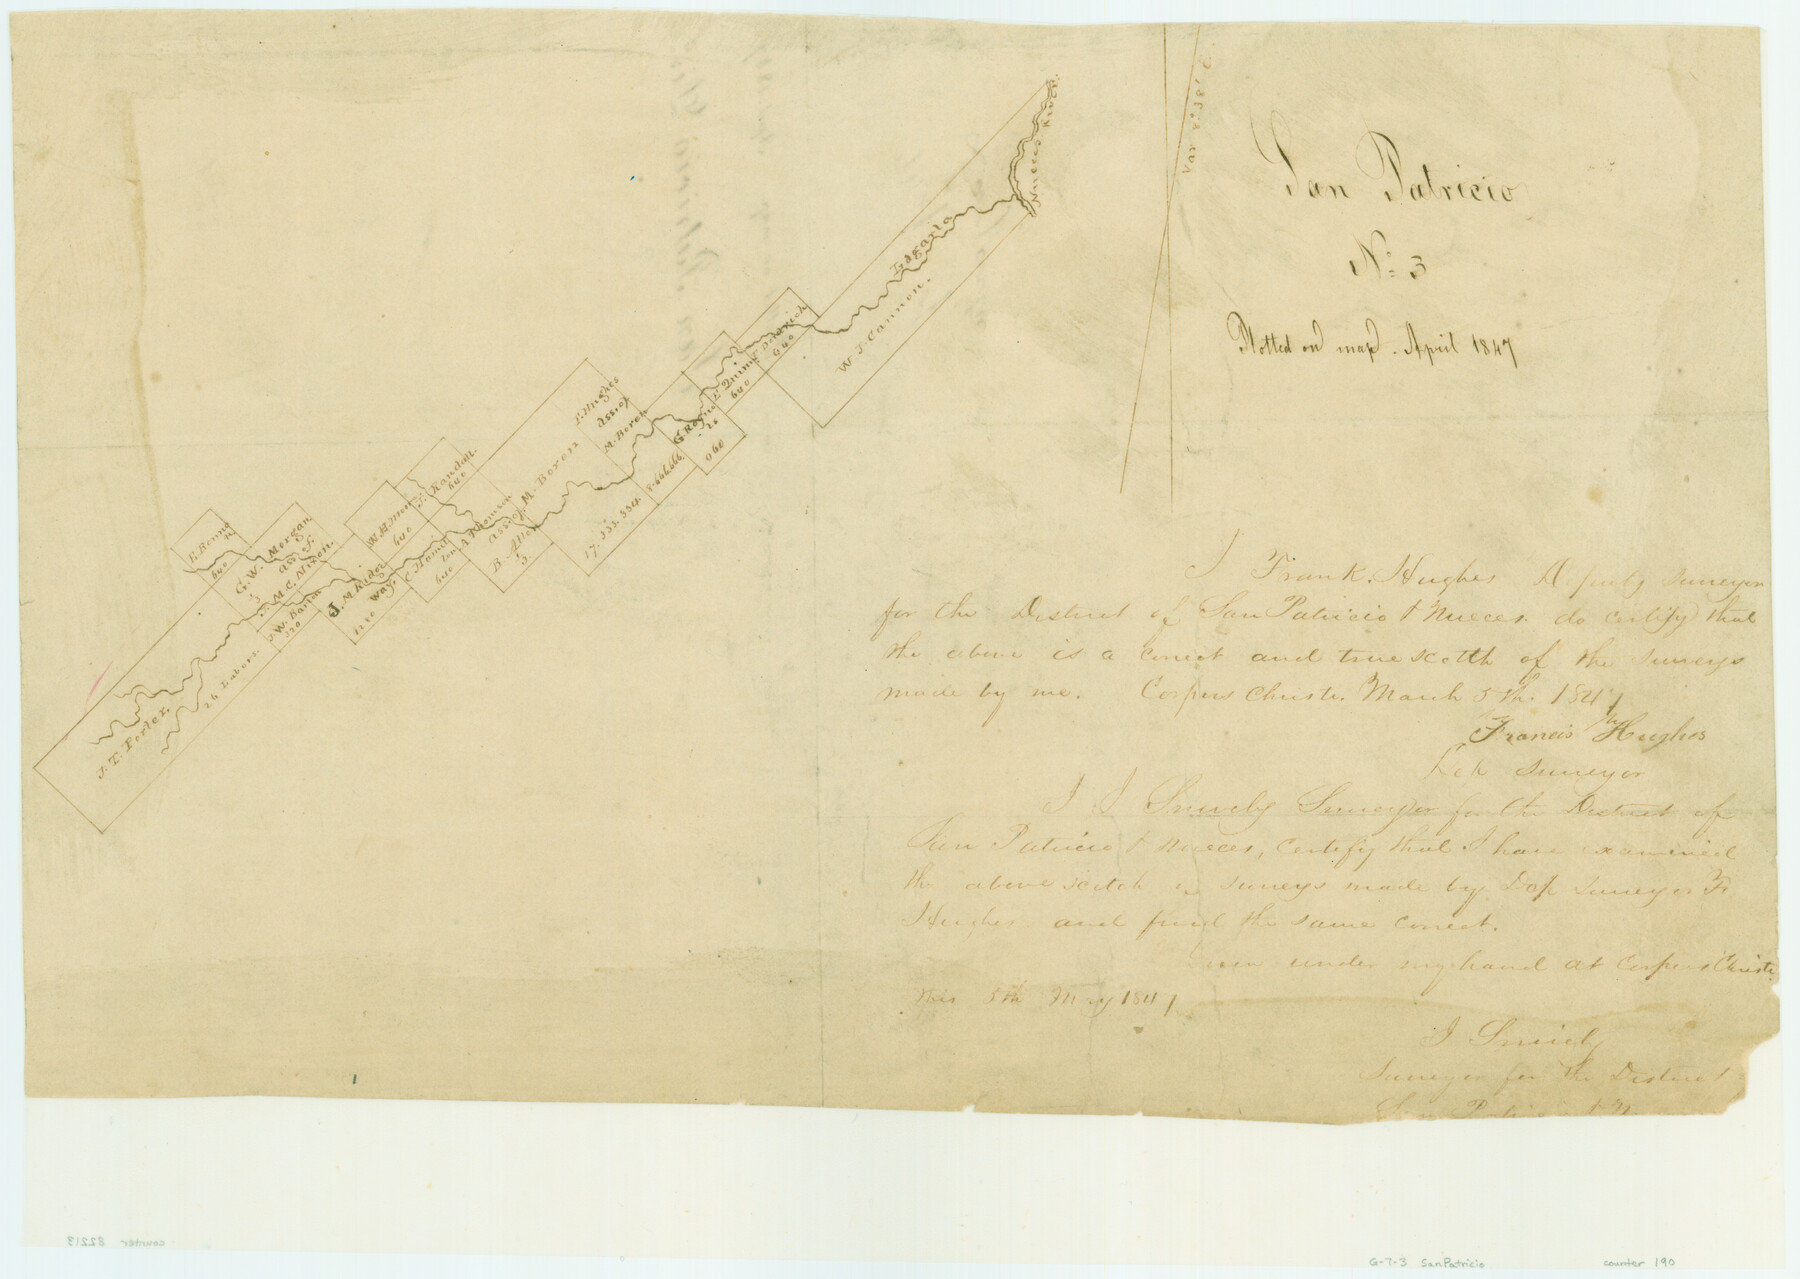 San Patricio
No. 3
Plotted on map. April 1847
Nueces River.
Lagarto
W. J. Cannon.
640
E. Quinn
640
G. Rogers
960
F. Hughes
Assie of
M. Boren
M. Boren
17.333.334.
8.666.666
B. Allen
1/3
A. Thomson
assie of
J. Randall.
640
640
C. Hamil
ton
640
J. M. Ridge
way
1280
J. W. Barton
320
G. W. Morgan
as. of.
J. M. C. Nixon.
1/3
640
J. T. Porter.
26 Labors.
I Frank. Hughes Deputy Surveyor
for the District of San Patricio & Nueces. do certify that
the above is a correct and true scetch of the surveys
made by me. Corpus Christi. March 5th. 1847
Francis Hughes
Dep Surveyor
I J Snively Surveyor for the District of
San Patricio & Nueces, certify that I have examined
the above scetch of surveys made by Dep Surveyor Fr
Hughes and find the same correct.
under my hand at Corpus Christi.
this 5th May 1847
J Snively
Surveyor for the District
San Patricio & N
counter 82213
G-7-3 San Patricio
counter 190